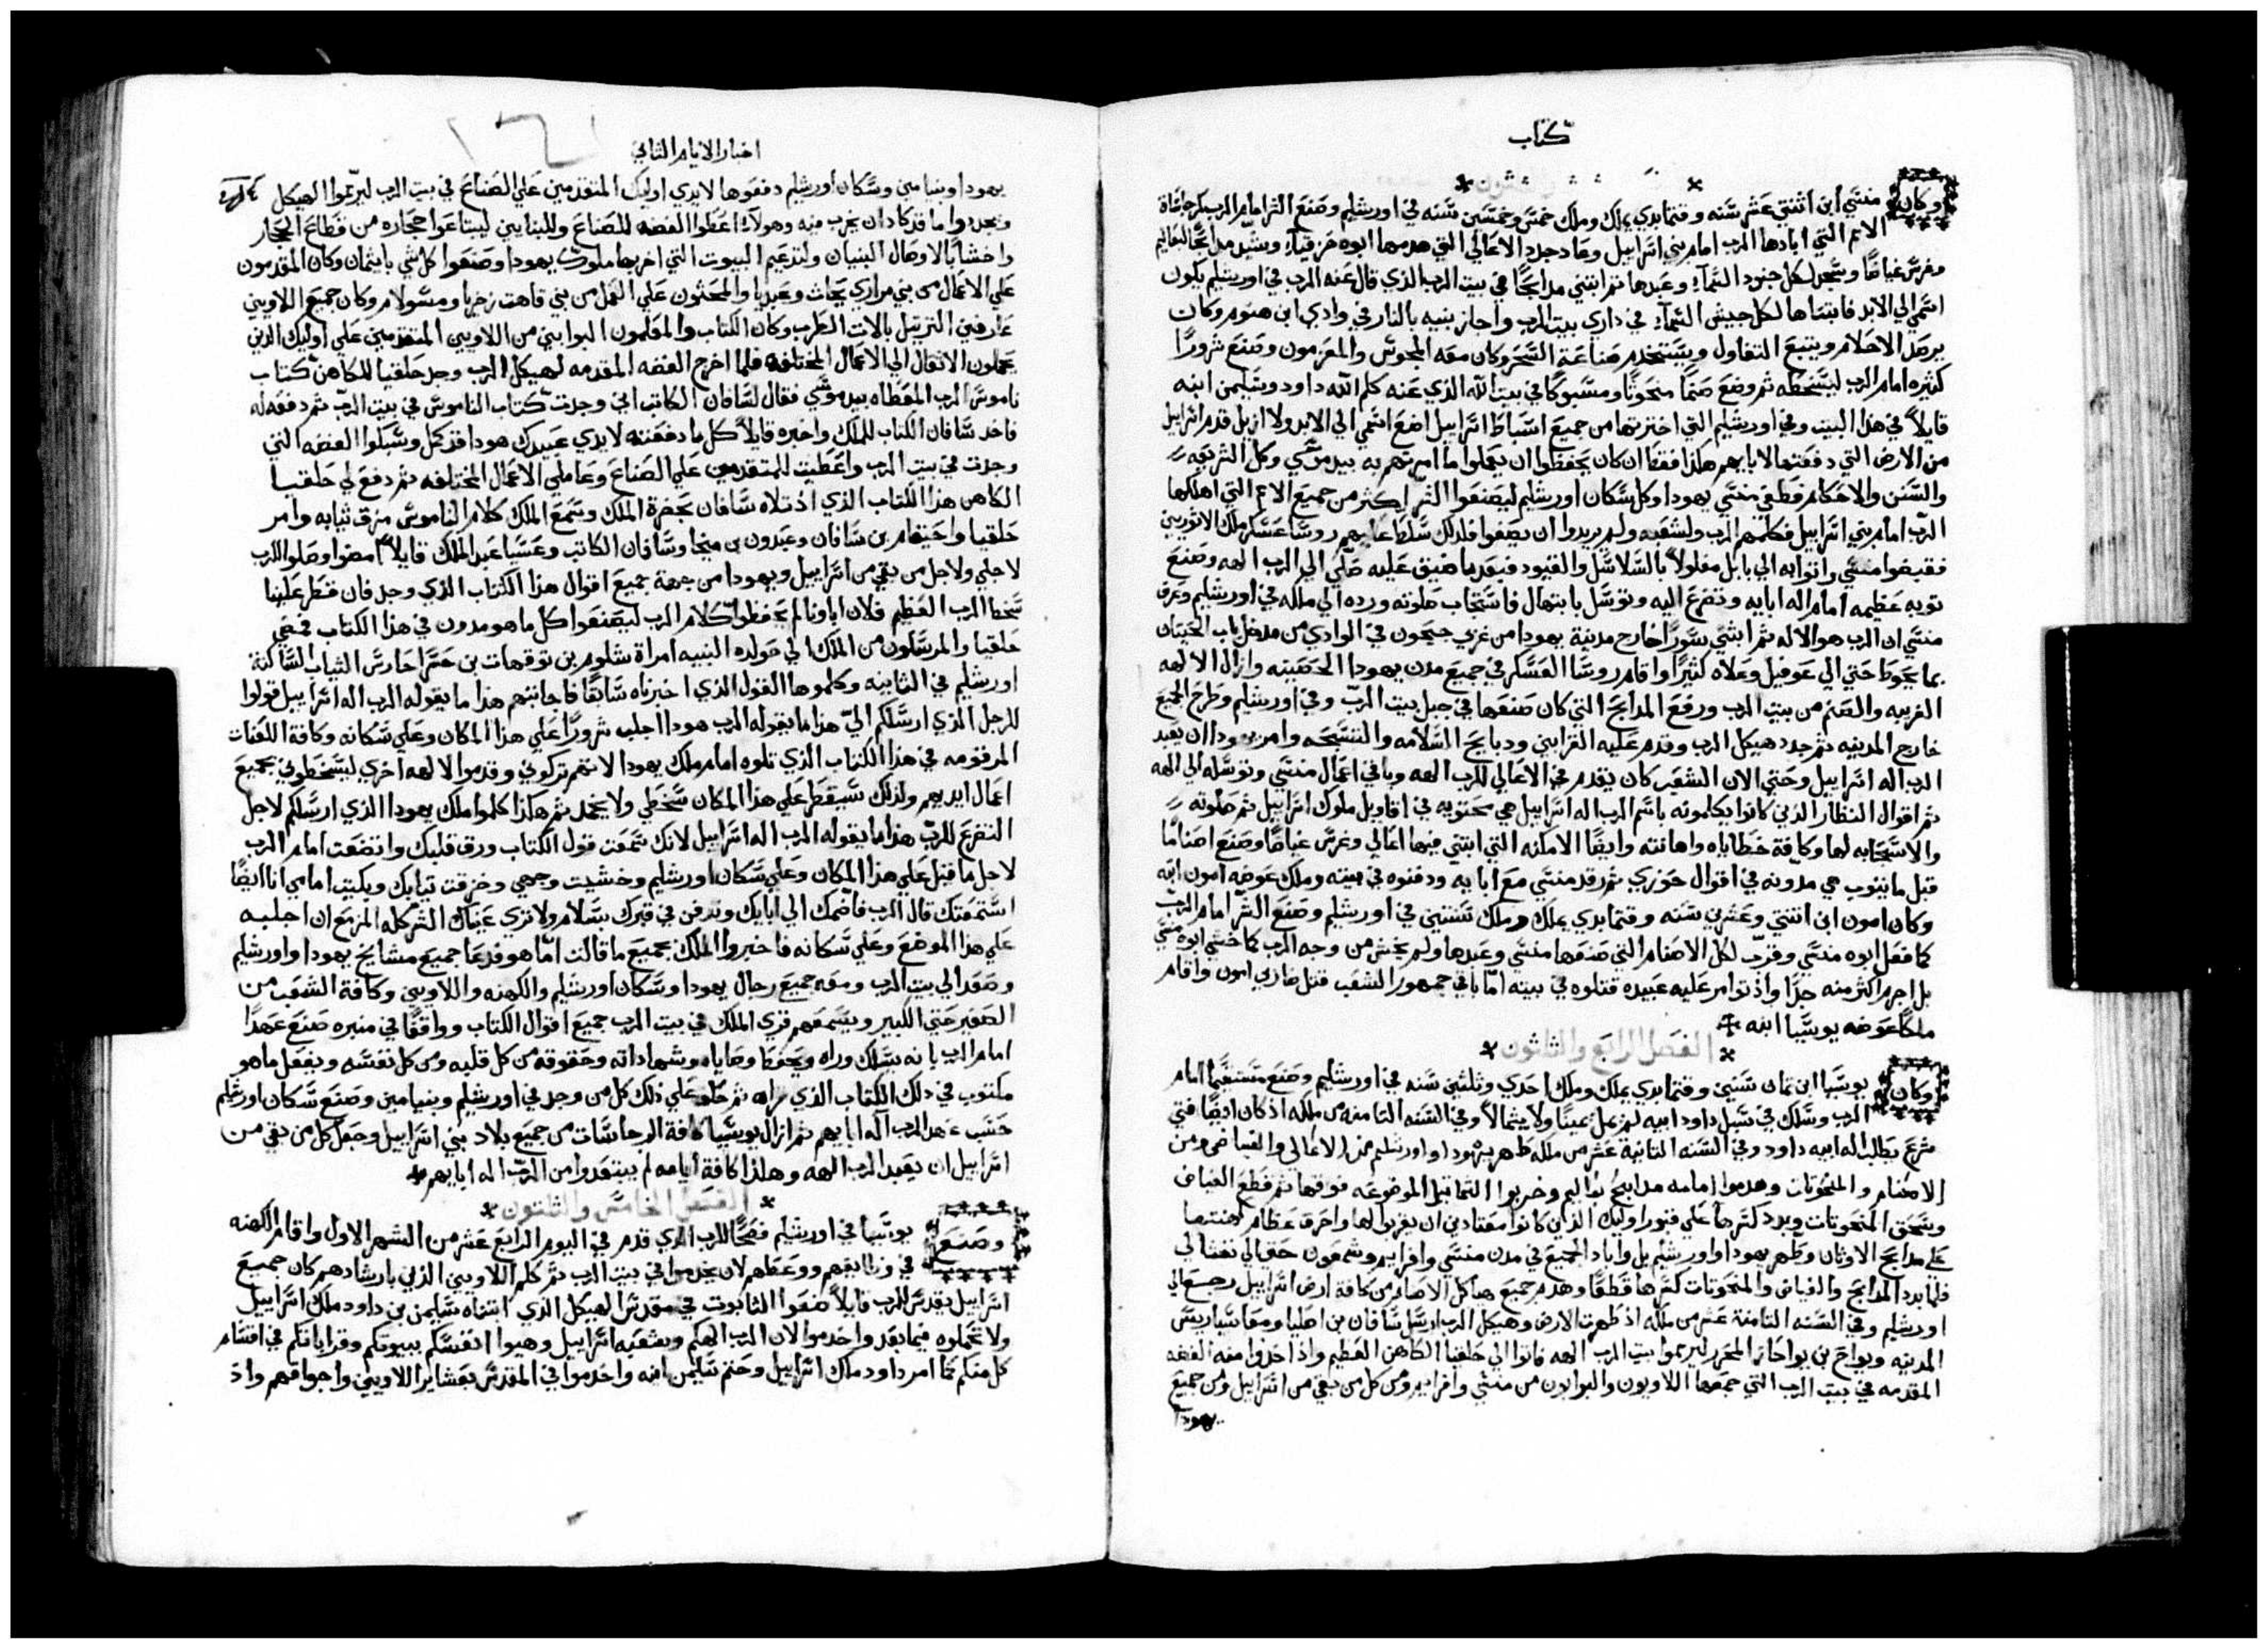 كتاب
وكان منسي ابن اثنتي عشر سنه وقتما بدي يملك وملك خمس وخمسين سنه في اورشليم وصنع الشر امام الرب كرجاسات
الامم التي ابادها الرب امام بني اسراييل وعاد جدد الاعالي التي هدمها ابوه حزقيا وشيد مدابحًا لبعاليم
وغرس غياضًا وسجد لكل جنود السمآء وعبدها ثم ابتني مدابحًا في بيت الرب الذي قال عنه الرب في اورشليم يكون
اسمي الي الابد فابتناها لكل جيش السمآء في داري بيت الرب واجاز بنيه بالنار في وادي ابن هنوم وكان
يرصد الاحلام ويتبع التفاول ويستخدم صناعة السحر وكان معه المجوس والمعزمون وصنع شرورًا
كثيره امام الرب ليسخطه ثم وضع صنمًا منحوتًا ومسبوكًا في بيت الله الذي عنه كلم الله داود وسليمن ابنه
قايلاً في هذا البيت وفي اورشليم التي اخترتها من جميع اسباط اسراييل اضع اسمي الي الابد ولا ازيل قدم اسراييل
من الارض التي دفعتها لابايهم هكذا فقط ان كان يحفظوا ان يعملوا ما امرتهم به بيد موسي وكل الشريعه
والسنن والاحكام فطغي منسي يهودا وكل سكان اورشليم ليصنعوا الشر اكثر من جميع الامم التي اهلكها
الرب امام بني اسراييل فكلمهم الرب ولشعبه ولم يريدوا ان يصغوا فلذلك سلط عليهم روسا عسكر ملك الاثوريين
فقبضوا منسي واتوا به الي بابل مغلولاً بالسلاسل والقيود فبعد ما ضيق عليه صلي الي الرب الهه وصنع
توبه عظيمه امام اله ابايه وتضرع اليه وتوسل بابتهال فاستجاب صلوته ورده الي ملكه في اورشليم وعرف
منسي ان الرب هو الاله ثم ابتني سورًا خارج مدينة يهودا من غربي جيحون في الوادي من مدخل باب الحيتان
بما يحوط حتي الي عوفيل وعلاه كثيرًا واقام روسا العسكر في جميع مدن يهودا الحصينه وازال الالهه
الغريبه والصنم من بيت الرب ورفع المدابح التي كان صنعها في جبل بيت الرب وفي اورشليم وطرح الجميع
خارج المدينه ثم جدد هيكل الرب وقدم عليه القرابين ودبايح السلامه والتسبحه وامر يهودا ان يعبد
الرب اله اسراييل وحتي الان الشعب كان يقدم في الاعالي للرب الهه وباقي اعمال منسي وتوسله الي الهه
ثم اقوال النظار الذين كانوا يكلمونه باسم الرب اله اسراييل هي محتويه في اقاويل ملوك اسراييل ثم صلوته
والاستجابه لها وكافة خطاياه واهانته وايضًا الامكنه التي ابتني فيها اعالي وغرس غياضًا وصنع اصنامًا
قبل ما يتوب هي مدونه في اقوال حوزي ثم رقد منسي مع ابايه ودفنوه في بيته وملك عوضه امون ابنه
وكان امون ابن اثنتي وعشرين سنه وقتما بدي يملك وملك سنتين في اورشليم وصنع الشر امام الرب
كما فعل ابوه منسي وقرب لكل الاصنام التي صنعها منسي وعبدها ولم يخش من وجه الرب كما خشي ابوه منسي
بل اجرم اكثر منه جدًا واذ توامر عليه عبيده قتلوه في بيته اما باقي جمهور الشعب قتل ضاربي امون واقام
ملكًا عوضه يوسيا ابنه
الفصل الرابع والثلثون
وكان يوسيا ابن ثمان سنين وقتما بدي يملك وملك احدي وثلثين سنه في اورشليم وصنع مستقيمًا امام
الرب وسلك في سبل داود ابيه لم يمل يمينًا ولا شمالاً وفي السنه الثامنه من ملكه اذ كان ايضًا فتي
شرع يطلب اله ابيه داود وفي السنه الثانية عشر من ملكه طهر يهودا واورشليم من الاعالي والغياض ومن
الاصنام والمنحوتات وهدموا امامه مدابح بعاليم وخربوا التماثيل الموضوعه فوقها ثم قطع الغياض
وسحق المنحوتات وبدد كسرها علي قبور اوليك الذين كانوا معتادين ان يقربوا لها واحرق عظام كهنتها
علي مدابح الاوثان وطهر يهودا واورشليم بل واباد الجميع في مدن منسي وافرايم وشمعون حتي الي نفتالي
فلما بدد المدابح والغياض والمنحوتات كسرها قطعًا وهدم جميع هياكل الاصنام من كافة ارض اسراييل رجع الي
اورشليم وفي السنه الثامنة عشر من ملكه اذ طهرت الارض وهيكل الرب ارسل سافان بن اصليا ومعاسيا ريس
المدينه ويواح بن يواحاز المحرر ليرمموا بيت الرب الهه فاتوا الي حلقيا الكاهن العظيم واذ اخدوا منه الفضه
المقدمه في بيت الرب التي جمعها اللاويون والبوابون من منسي وافرايم ومن كل من بقي من اسراييل ومن جميع
يهودا
اخبار الايام الثاني
يهودا وبنيامين وسكان اورشليم دفعوها لايدي اوليك المتقدمين علي الصناع في بيت الرب ليرمموا الهيكل
ويجددوا ما قد كاد ان يخرب منه وهولآء اعطوا الفضه للصناع وللبنايين ليبتاعوا حجاره من قطاع الحجار
واخشابًا لاوصال البنيان ولتدعيم البيوت التي اخربها ملوك يهودا وصنعوا كل شي بايتمان وكان المقدمون
علي الاعمال من بني مراري يحاث وعبديا والمحثون علي العمل من بني قاهت زخريا ومسولام وكان جميع اللاويين
عارفين الترتيل بالات الطرب وكان الكتاب والمعلمون البوابين من اللاويين المتقدمين علي اوليك الذين
يحملون الاثقال الي الاعمال المختلفه فلما اخرج الفضه المقدمه لهيكل الرب وجد حلقيا الكاهن كتاب
ناموس الرب المعطاه بيد موسي فقال لسافان الكاتب اني وجدت كتاب الناموس في بيت الرب ثم دفعه له
فاخد سافان الكتاب للملك واخبره قايلاً كل ما دفعته لايدي عبيدك هودا قد كمل وسبكوا الفضه التي
وجدت في بيت الرب واعطيت للمتقدمين علي الصناع وعاملي الاعمال المختلفه ثم دفع لي حلقيا
الكاهن هذا الكتاب الذي اذ تلاه سافان بحضرة الملك وسمع الملك كلام الناموس مزق ثيابه وامر
حلقيا واحيقام بن سافان وعبدون بن ميخا وسافان الكاتب وعسيا عبد الملك قايلاً امضوا وصلوا للرب
لاجلي ولاجل من بقي من اسراييل ويهودا من جهة جميع اقوال هذا الكتاب الذي وجد فان قطر علينا
سخط الرب العظيم فلان اباونا لم يحفظوا كلام الرب ليصنعوا كل ما هو مدون في هذا الكتاب فمضي
حلقيا والمرسلون من الملك الي حولده النبيه امراة شلوم بن توقهات بن حسرا حارس الثياب الساكنة
اورشليم في الثانيه وكلموها القول الذي اخبرناه سابقًا فاجابتهم هذا ما يقوله الرب اله اسراييل قولوا
للرجل الذي ارسلكم اليّ هذا ما يقوله الرب هودا اجلب شرورًا علي هذا المكان وعلي سكانه وكافة اللعنات
المرقومه في هذا الكتاب الذي تلوه امام ملك يهودا لانهم تركوني وقدموا لالهه اخري ليسخطوني بجميع
اعمال ايديهم ولذلك سيقطر علي هذا المكان سخطي ولا يخمد ثم هكذا كلموا ملك يهودا الذي ارسلكم لاجل
التضرع للرب هذا ما يقوله الرب اله اسراييل لانك سمعت قول الكتاب ورق قلبك واتضعت امام الرب
لاجل ما قيل علي هذا المكان وعلي سكان اورشليم وخشيت وجهي وخزقت ثيابك وبكيت امامي انا ايضًا
استمعتك قال الرب فاضمك الي ابايك وتدفن في قبرك بسلام ولا تري عيناك الشر كله المزمع ان اجلبه
علي هذا الموضع وعلي سكانه فاخبروا الملك بجميع ما قالت اما هو فدعا جميع مشايخ يهودا واورشليم
وصعد الي بيت الرب ومعه جميع رجال يهودا وسكان اورشليم والكهنه واللاويين وكافة الشعب من
الصغير حتي الكبير ويسمعهم قري الملك في بيت الرب جميع اقوال الكتاب وواقفًا في منبره صنع عهدًا
امام الرب بانه يسلك وراه ويحفظ وصاياه وشهاداته وحقوقه من كل قلبه ومن كل نفسه ويفعل ما هو
مكتوب في ذلك الكتاب الذي قراه ثم حلف علي ذلك كل من وجد في اورشليم وبنيامين وصنع سكان اورشليم
حسب عهد الرب اله ابايهم ثم ازال يوسيا كافة الرجاسات من جميع بلاد بني اسراييل وجعل كل من بقي من
اسراييل ان يعبد الرب الهه وهكذا كافة ايامه لم يبتعدوا من الرب اله ابايهم
الفصل الخامس والثلثون
وصنع يوسيا في اورشليم فصحًا للرب الذي قدم في اليوم الرابع عشر من الشهر الاول واقام الكهنه
في وظايفهم ووعظهم لان يخدموا في بيت الرب ثم كلم اللاويين الذين بارشادهم كان جميع
اسراييل يقدس للرب قايلاً ضعوا التابوت في مقدس الهيكل الذي ابتناه سليمن بن داود ملك اسراييل
ولا تحملوه فيما بعد واخدموا الان الرب الهكم وشعبه اسراييل وهيوا انفسكم ببيوتكم وقراباتكم في اقسام
كل منكم كما امر داود ملك اسراييل وحتم سليمن ابنه واخدموا في المقدس بعشاير اللاويين واجواقهم واذ